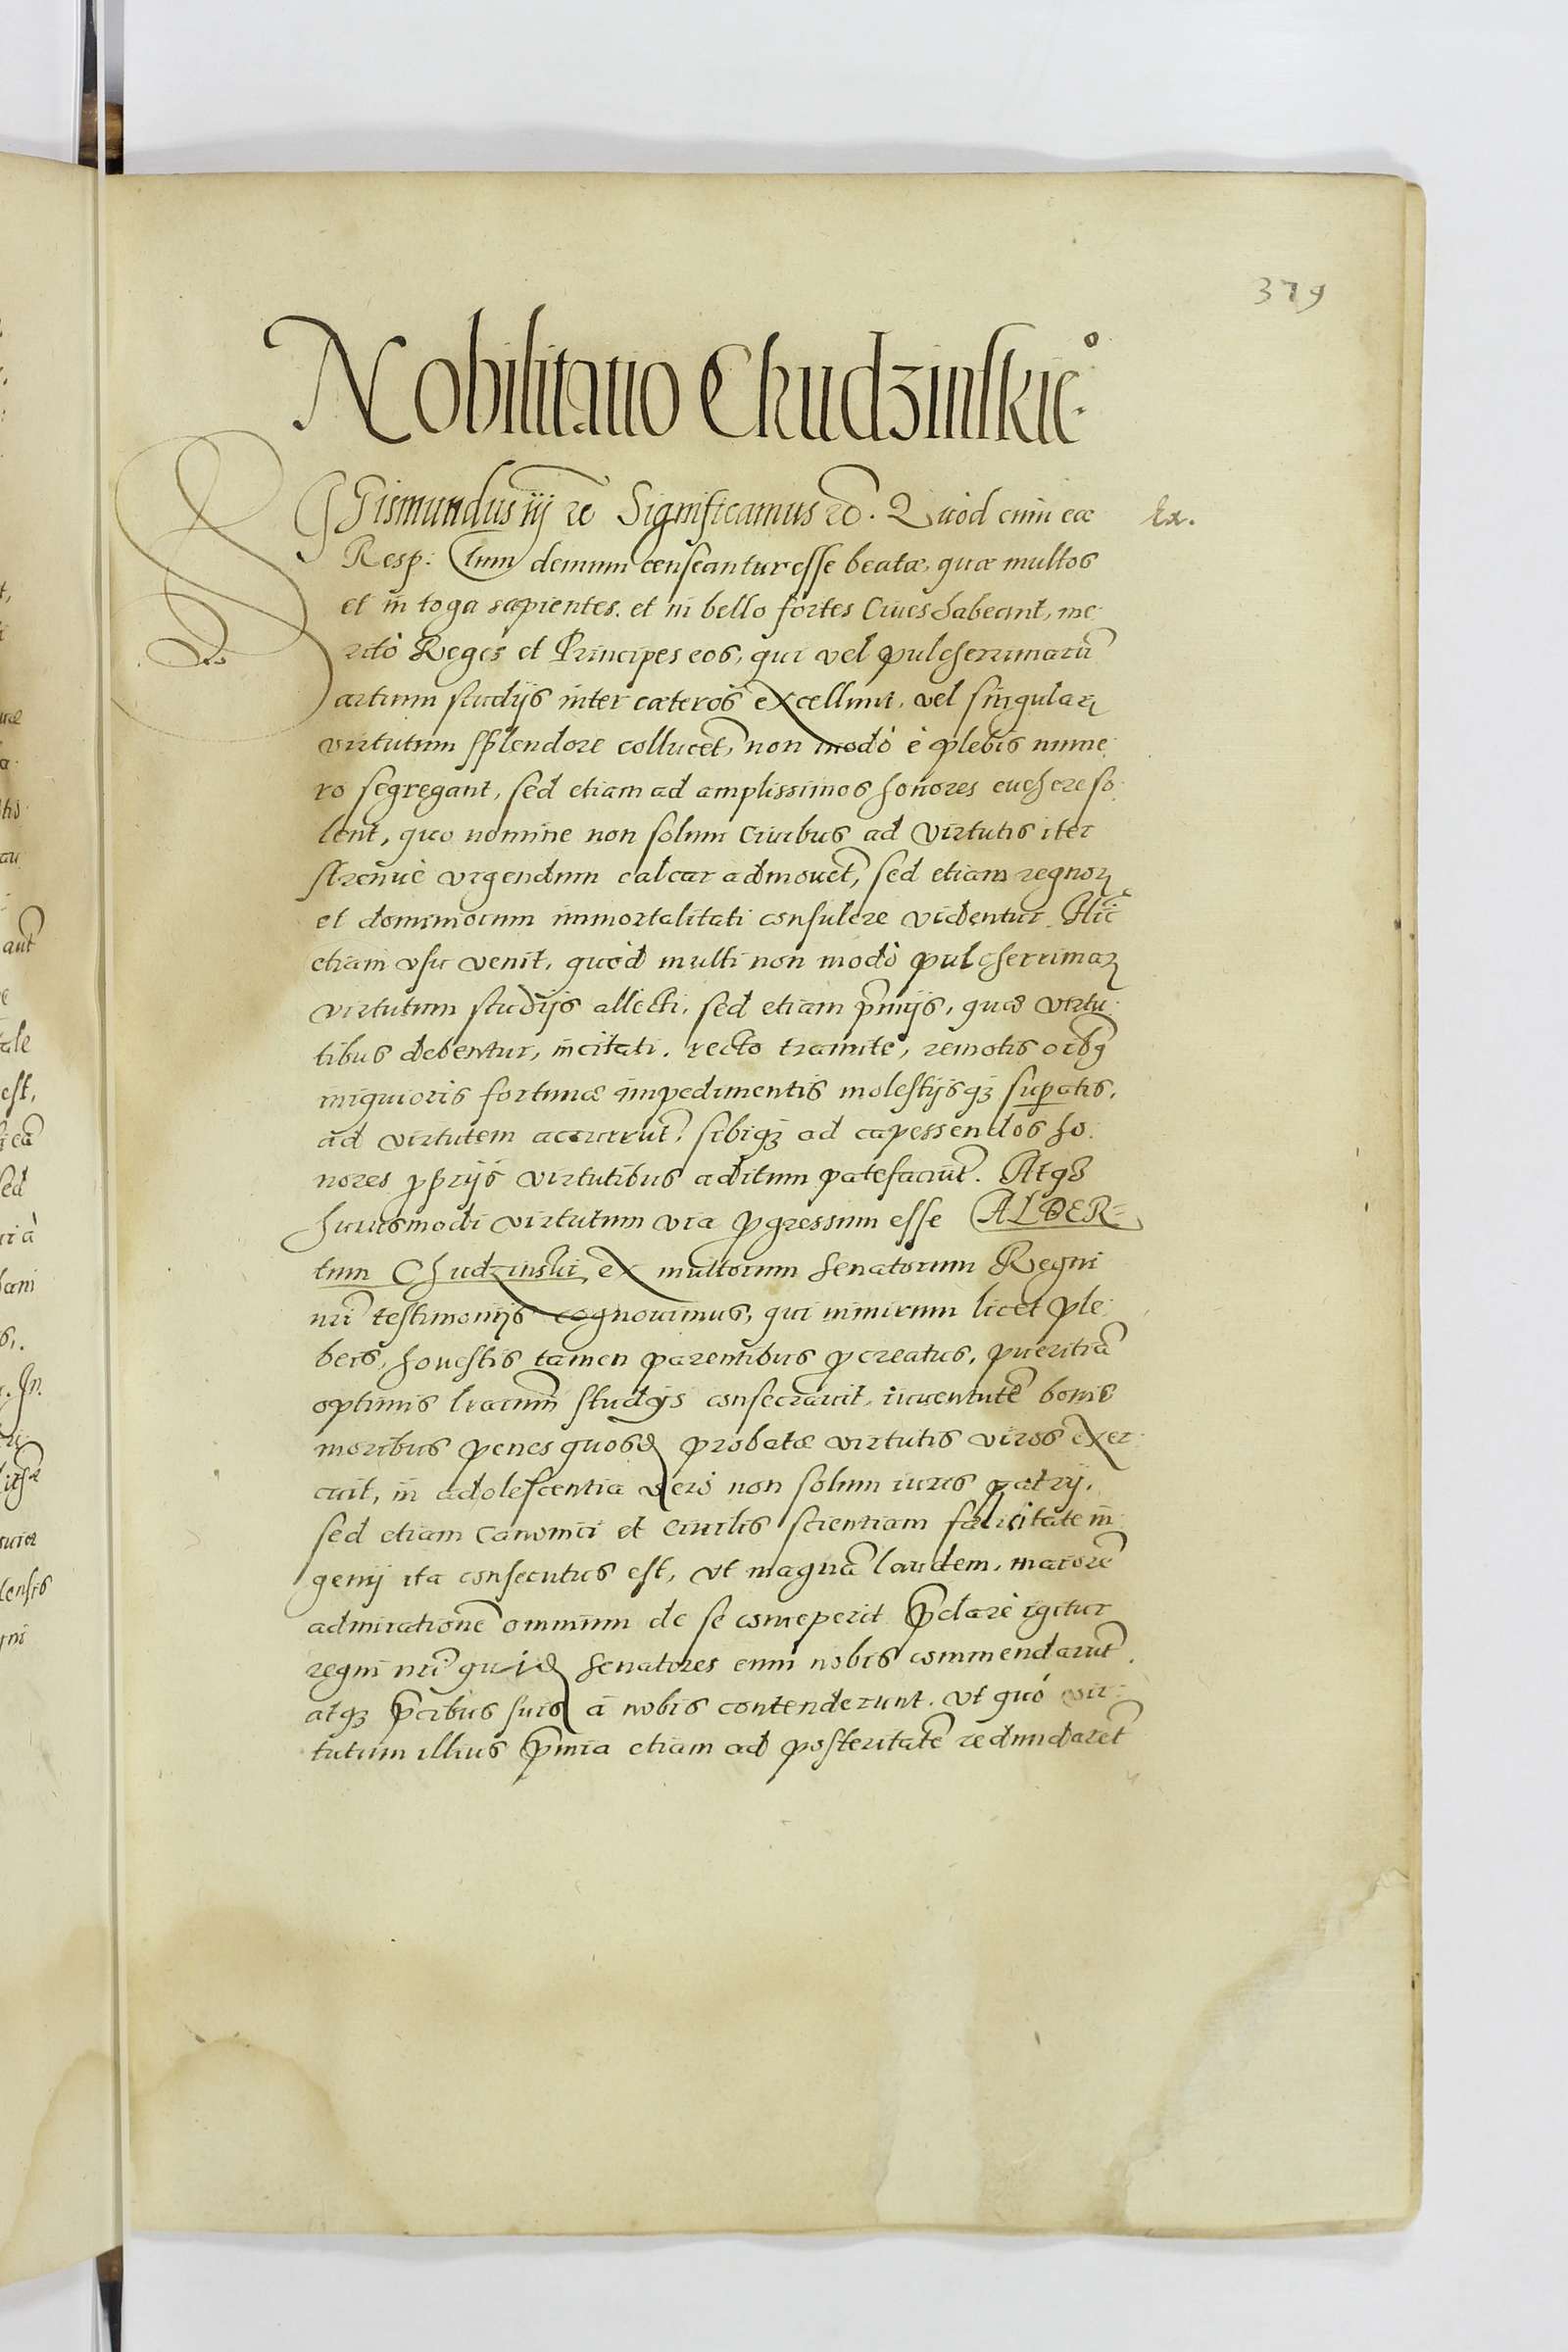 379
Nobilitatio Chudzinskieº.
SIGismundus iij rc Significamus rc. Quòd cum eæ
Ex.
Resp: tum demum censeantur esse beatæ, quæ multos
et in toga sapientes, et in bello fortes Ciues habeant, me
ritò Reges et Principes eos, qui vel pulcherrimarũ
artium studijs inter cæteros excellunt, vel singulaꝝ
virtutum splendore collucẽt, non modò è plebis nume
ro segregant, sed etiam ad amplissimos honores euehere so
lent, quo nomine non solum Ciuibus ad virtutis iter
strenuè vrgendum calcar admouẽt, sed etiam regnoꝝ
et dominiorum immortalitati consulere videntur. Hĩc
etiam vsu venit, quòd multi non modò pulcherrimaꝝ
virtutum studijs allecti, sed etiam p̃mijs, quæ virtu
tibus debentur, incitati, recto tramite, remotis oĩbꝫ
iniquioris fortunæ impedimentis molestijsqꝫ suꝑatis,
ad virtutem accurrũt, sibiqꝫ ad capessendos ho
nores ꝓprijs virtutibus aditum patefaciũt. Atqꝫ
huiusmodi virtutum via ꝓgressum esse ALBER=
tum Chudzinski ex multorum Senatorum Regni
nr̃i testimonijs cognouimus, qui nimirum licet ple
beis, honestis tamen parentibus ꝓcreatus, pueritiã
optimis lr̃arum studijs consecrauit, iuuentutẽ bonis
moribus penes quosd probatæ virtutis viros exer
cuit, in adolescentia verò non solum iuris patrij,
sed etiam Canonici et Ciuilis scientiam felicitate in
genij ita consecutus est, vt magnã laudem, maiorẽ
admirationẽ omnium de se conceperit p̃clarè igitur
regni nr̃i quid Senatores eum nobis commendarũt
atqꝫ p̃cibus suis à nobis contenderunt. vt quò vir
tutum illius p̃mia etiam ad posteritatẽ redundarẽt